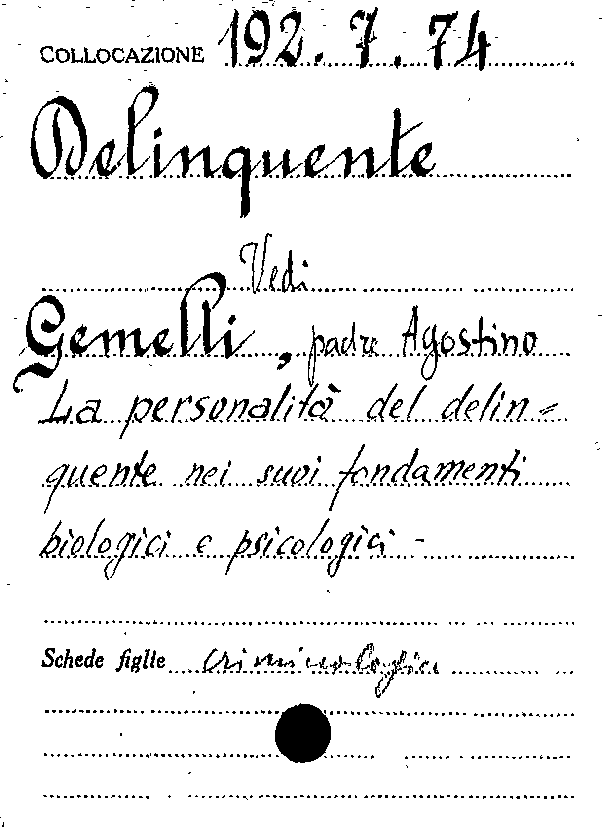 COLLOCAZIONE 192.7.74
Delinquente
Vedi
Gemelli, padre Agostino
La personalità del delin=
quente nei suoi fondamenti
biologici e psicologici -
Schede figlie criminologia